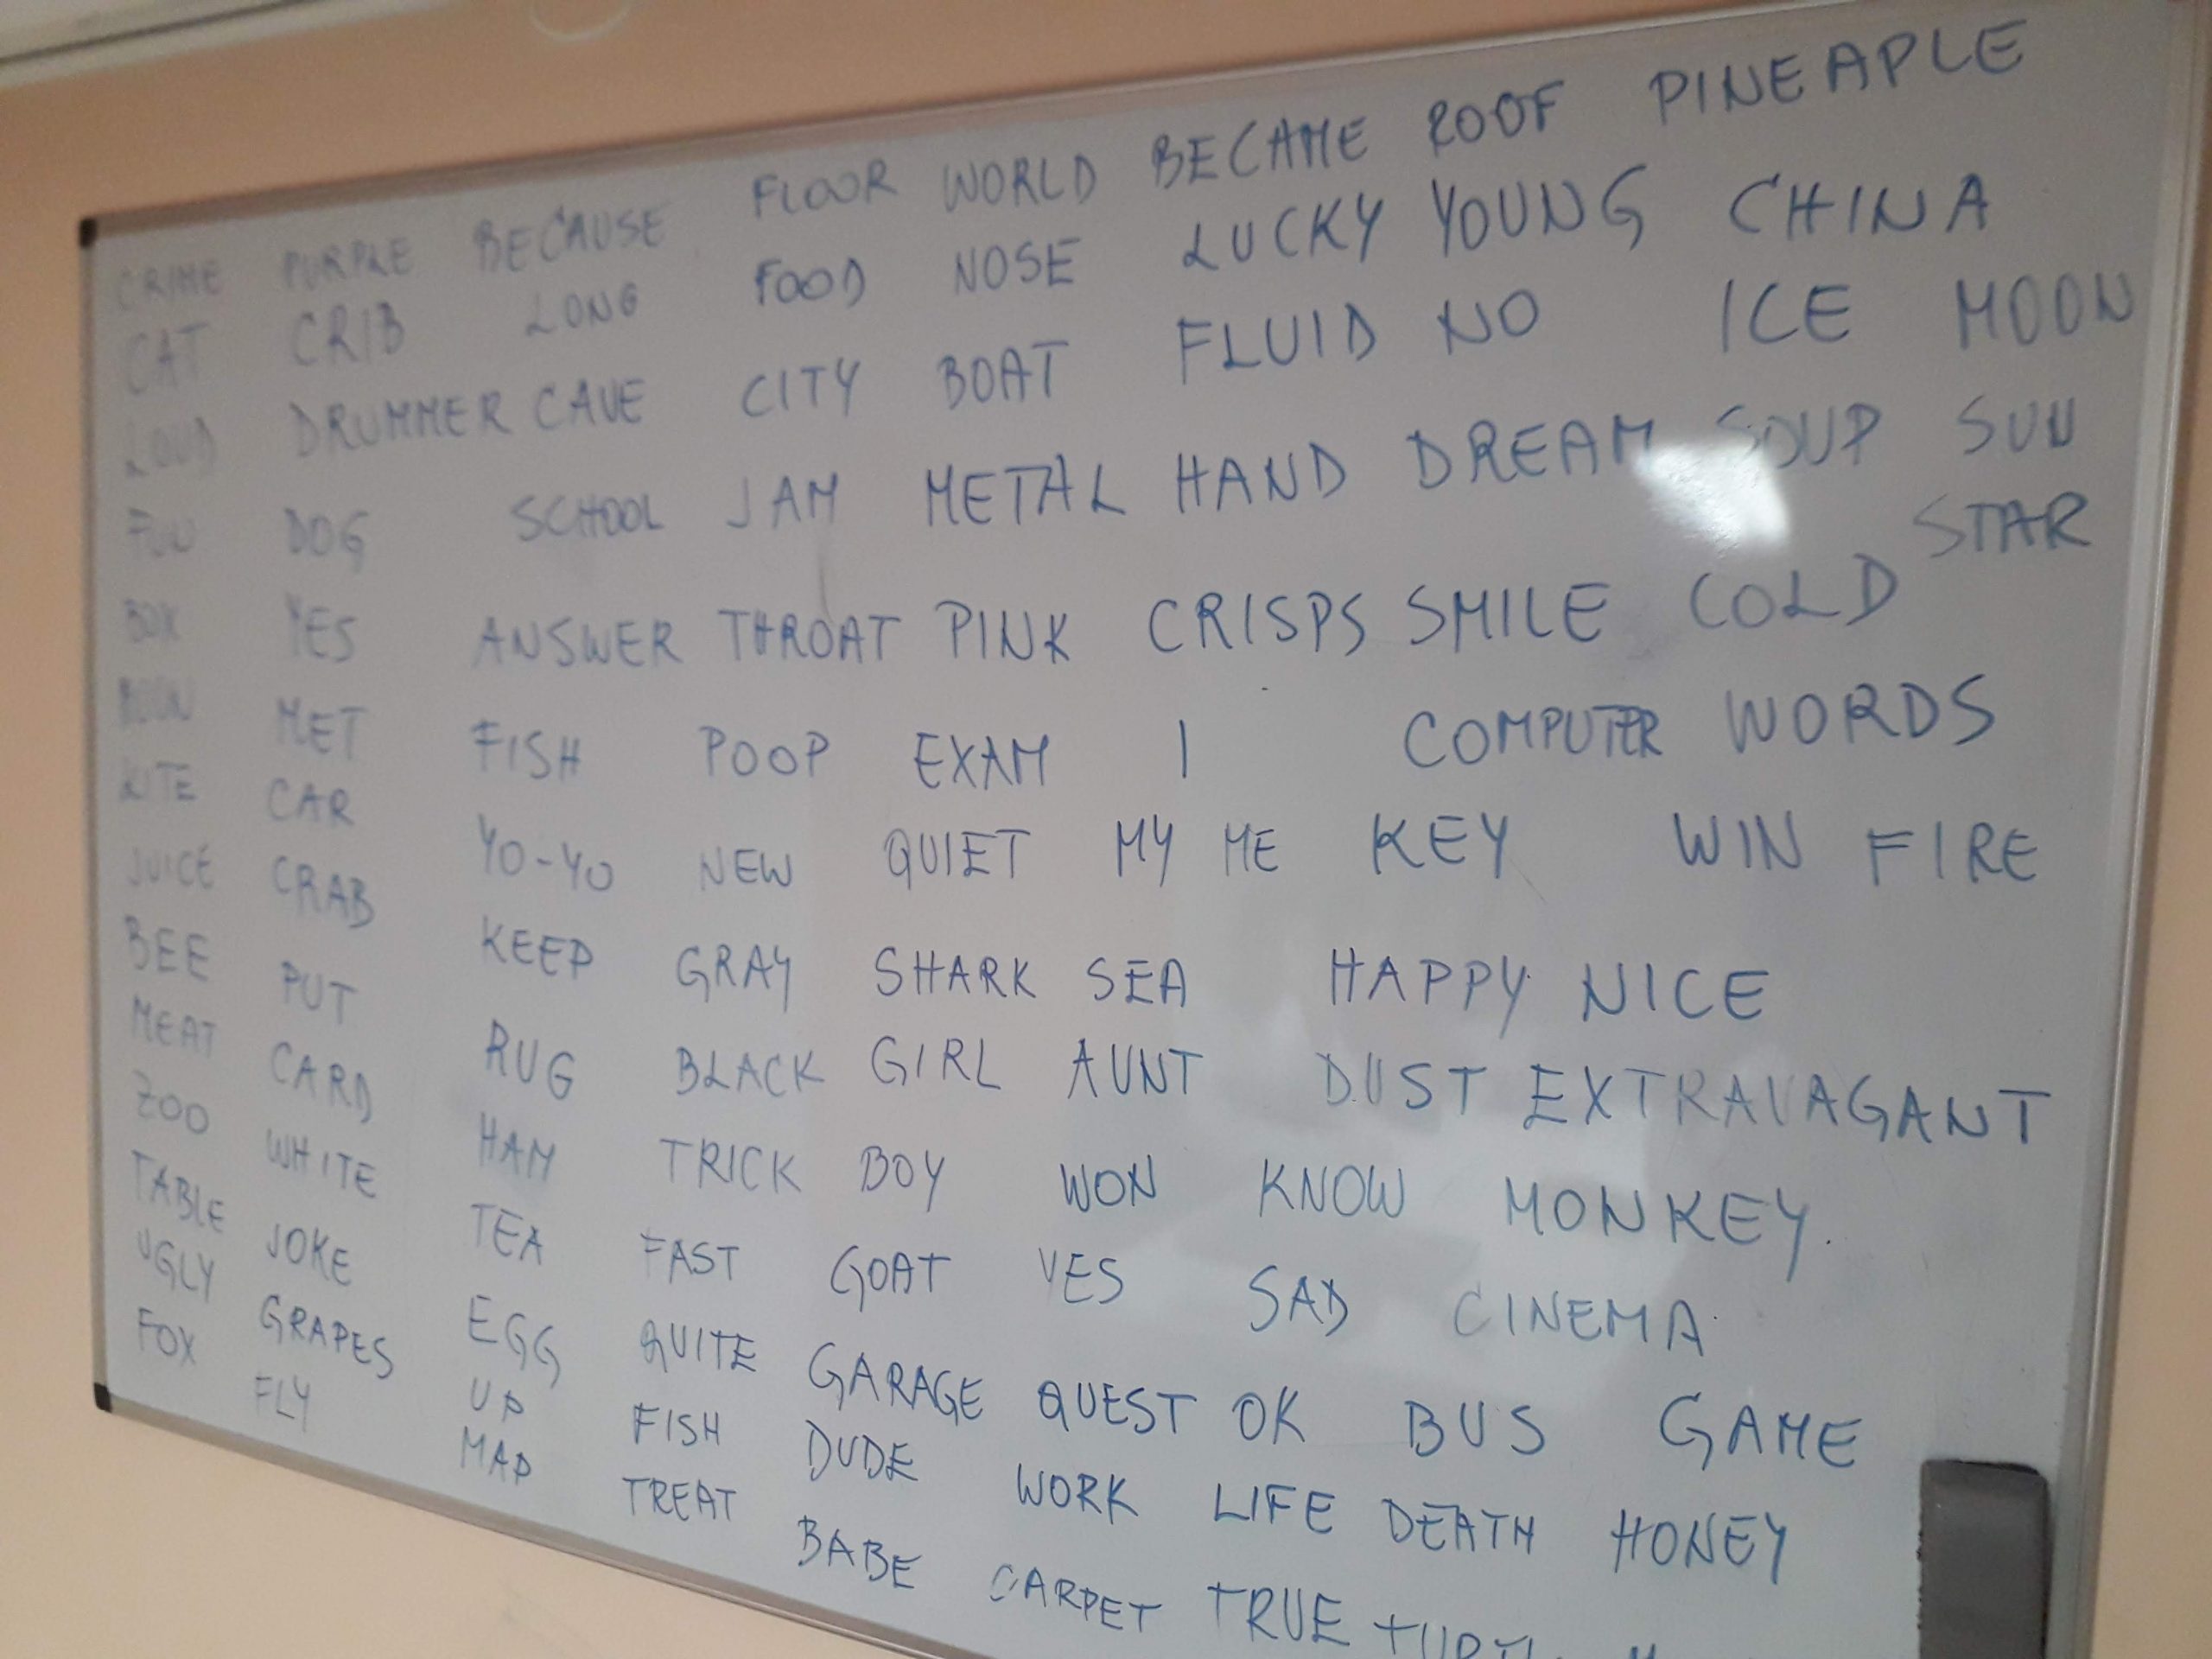 CRIME PURPLE BECAUSE FLOOR WORLD BECAME ROOF PINEAPLE
CAT CRIB LONG FOOD NOSE LUCKY YOUNG CHINA
LOUD DRUMMER CAVE CITY BOAT FLUID NO ICE MOON
FUN DOG SCHOOL JAM METAL HAND DREAM SOUP SUN
BOX YES ANSWER THROAT PINK CRISPS SMILE COLD STAR
MET FISH POOP EXAM I COMPUTER WORDS
KITE CAR YO-YO NEW QUIET MY ME KEY WIN FIRE
JUICE CRAB KEEP GRAY SHARK SEA HAPPY NICE
BEE PUT RUG BLACK GIRL AUNT DUST EXTRAVAGANT
MEAT CARD HAM TRICK BOY WON KNOW MONKEY.
ZOO WHITE TEA FAST GOAT YES SAD CINEMA
TABLE JOKE EGG QUITE GARAGE QUEST OK BUS GAME
UGLY GRAPES UP FISH DUDE WORK LIFE DEATH HONEY
FOX FLY MAP TREAT BABE CARPET TRUE